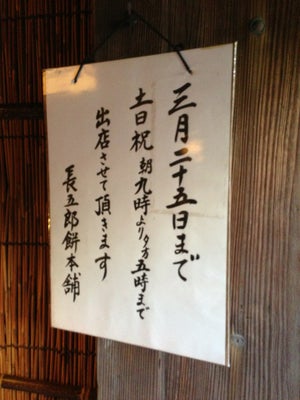 三月二十五日まで
土日祝朝九時より夕方五時まで
出店させて頂きます
長五郎餅本舗